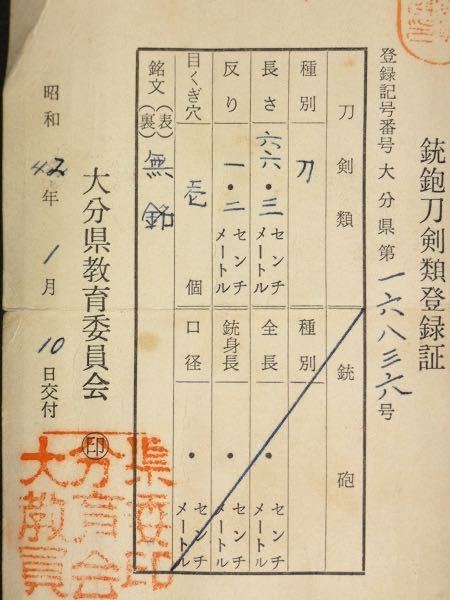 銃鉋刀剣類登録証
登録記号番号 大分県第一六八三六号
刀剣類
銃砲
種別 刀
種別
長さ 六六・三 センチメートル
全長 ・ センチメートル
反り 一・二 センチメートル
銃身長 ・ センチメートル
目くぎ穴 壱 個
口径 ・ センチメートル
銘文(表)(裏) 無銘
大分県教育委員会㊞
昭和42年1月10日交付
大分県
教育委
員会印